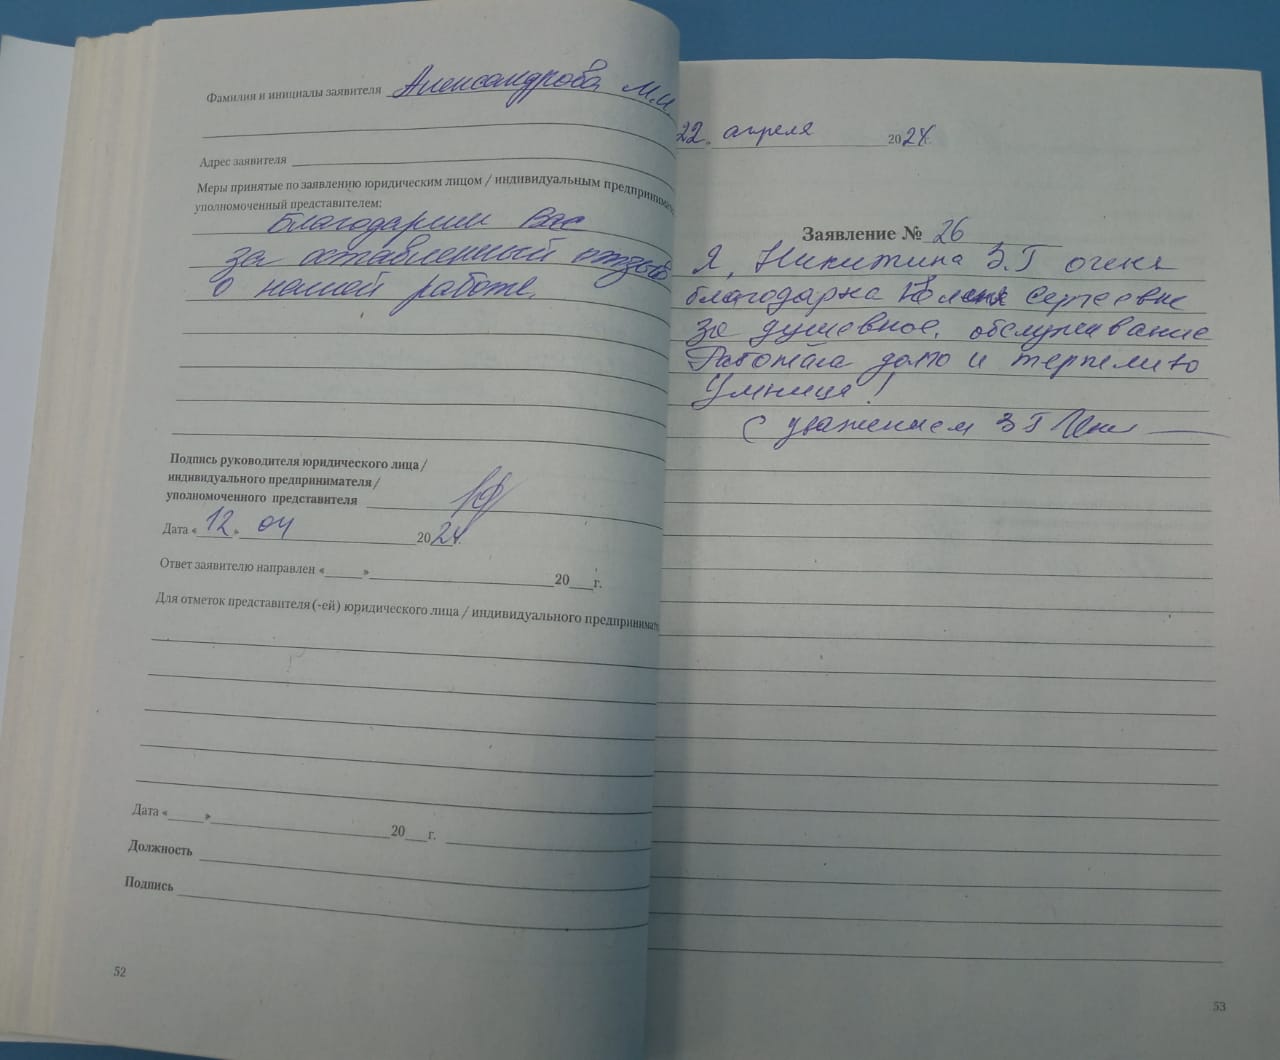 Фамилия и инициалы заявителя Александрова М.И
Адрес заявителя
Меры принятые по заявлению юридическим лицом / индивидуальным предпринимате
уполномоченный представителем:
Благодарим Вас
за оставленный отзыв
о нашей работе.
Подпись руководителя юридического лица /
индивидуального предпринимателя /
уполномоченного представителя
Дата «12.» 04 2024г.
Ответ заявителю направлен «____»____ 20___г.
Для отметок представителя(-ей) юридического лица / индивидуального предпринимат
Дата «____»____ 20___г.
Должность
Подпись
52
22. апреля 2024г.
Заявление № 26
Я, Никитина З.Г очень
благодарна Сергеевне
за душевное, обслуживание
Работала и терпеливо
Умница!
С уважением З Г
53